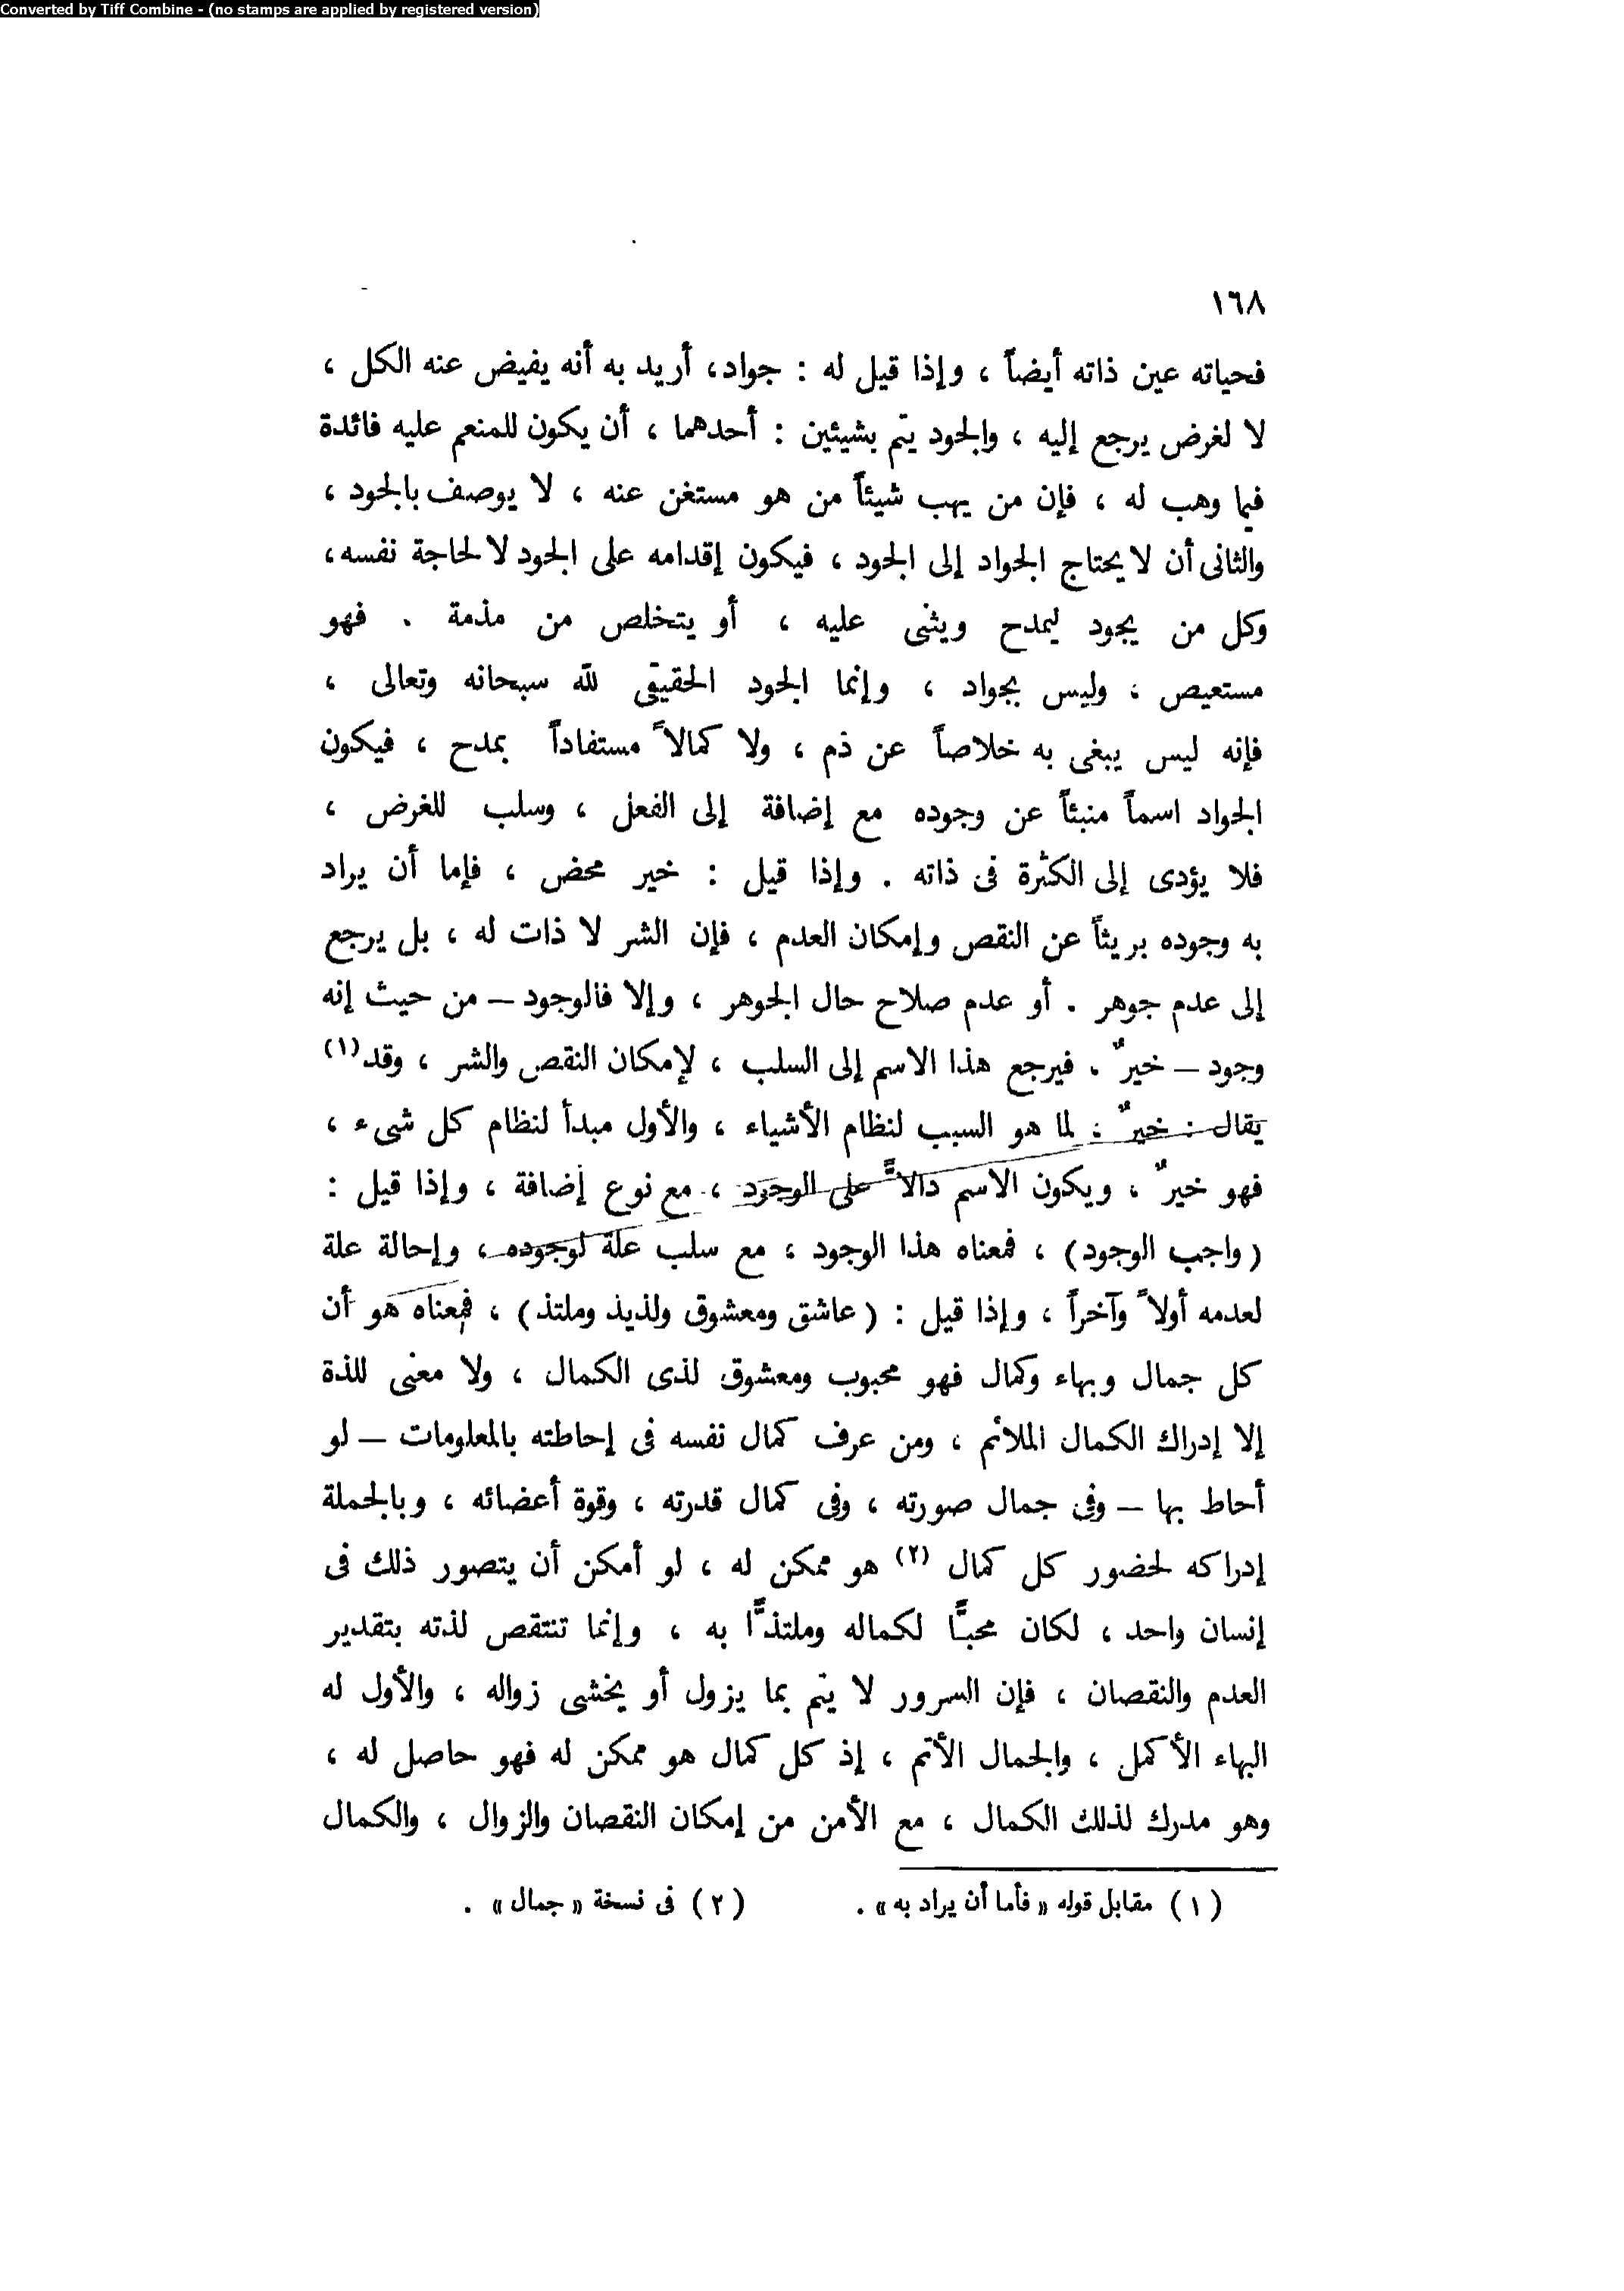 Converted by Tiff Combine - (no stamps are applied by registered version)
١٦٨
فحياته عين ذاته أيضاً ، وإذا قيل له : جواد، أريد به أنه يفيض عنه الكل ،
لا لغرض يرجع إليه ، والجود يتم بشيئين : أحدهما ، أن يكون للمنعم عليه فائدة
فيما وهب له ، فإن من يهب شيئاً من هو مستغن عنه ، لا يوصف بالجود ،
والثانى أن لا يحتاج الجواد إلى الجود ، فيكون إقدامه على الجود لا لحاجة نفسه،
وكل من يجود ليمدح ويثنى عليه ، أو يتخلص من مذمة . فهو
مستعيص ، وليس بجواد ، وإنما الجود الحقيقى لله سبحانه وتعالى ،
فإنه ليس يبغى به خلاصاً عن ذم ، ولا كمالاً مستفاداً بمدح ، فيكون
الجواد اسماً منبئاً عن وجوده مع إضافة إلى الفعل ، وسلب للغرض ،
فلا يؤدى إلى الكثرة فى ذاته . وإذا قيل : خير محض ، فإما أن يراد
به وجوده بريئاً عن النقص وإمكان العدم ، فإن الشر لا ذات له ، بل يرجع
إلى عدم جوهر . أو عدم صلاح حال الجوهر ، وإلا فالوجود – من حيث إنه
وجود – خيرٌ . فيرجع هذا الاسم إلى السلب ، لإمكان النقص والشر ، وقد(١)
يقال : خيرٌ : لما هو السبب لنظام الأشياء ، والأول مبدأ لنظام كل شىء ،
فهو خيرٌ ، ويكون الاسم دالاًّ على الوجود ، مع نوع إضافة ، وإذا قيل :
(واجب الوجود) ، فمعناه هذا الوجود ، مع سلب علة لوجوده ، وإحالة علة
لعدمه أولاً وآخراً ، وإذا قيل : (عاشق ومعشوق ولذيذ وملتذ) ، فمعناه هو أن
كل جمال وبهاء وكمال فهو محبوب ومعشوق لذى الكمال ، ولا معنى للذة
إلا إدراك الكمال الملائم ، ومن عرف كمال نفسه فى إحاطته بالمعلومات – لو
أحاط بها – وفى جمال صورته ، وفى كمال قدرته ، وقوة أعضائه ، وبالجملة
إدراكه لحضور كل كمال (٢) هو ممكن له ، لو أمكن أن يتصور ذلك فى
إنسان واحد ، لكان محبًّا لكماله وملتذًّا به ، وإنما تنتقص لذته بتقدير
العدم والنقصان ، فإن السرور لا يتم بما يزول أو يخشى زواله ، والأول له
البهاء الأكمل ، والجمال الأتم ، إذ كل كمال هو ممكن له فهو حاصل له ،
وهو مدرك لذلك الكمال ، مع الأمن من إمكان النقصان والزوال ، والكمال
(١) مقابل قوله « فأما أن يراد به » . (٢) فى نسخة « جمال » .